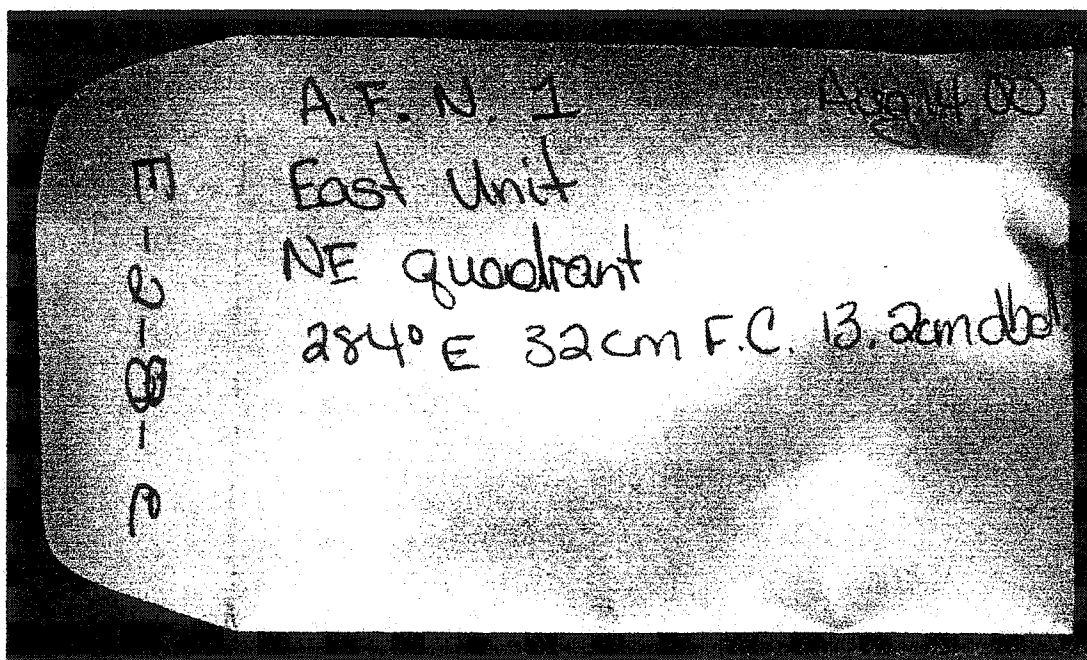 A.F.N. 1 Aug. 14. 00
East Unit
NE quadrant
284° E 32cm F.C. 13.2cm dbd.